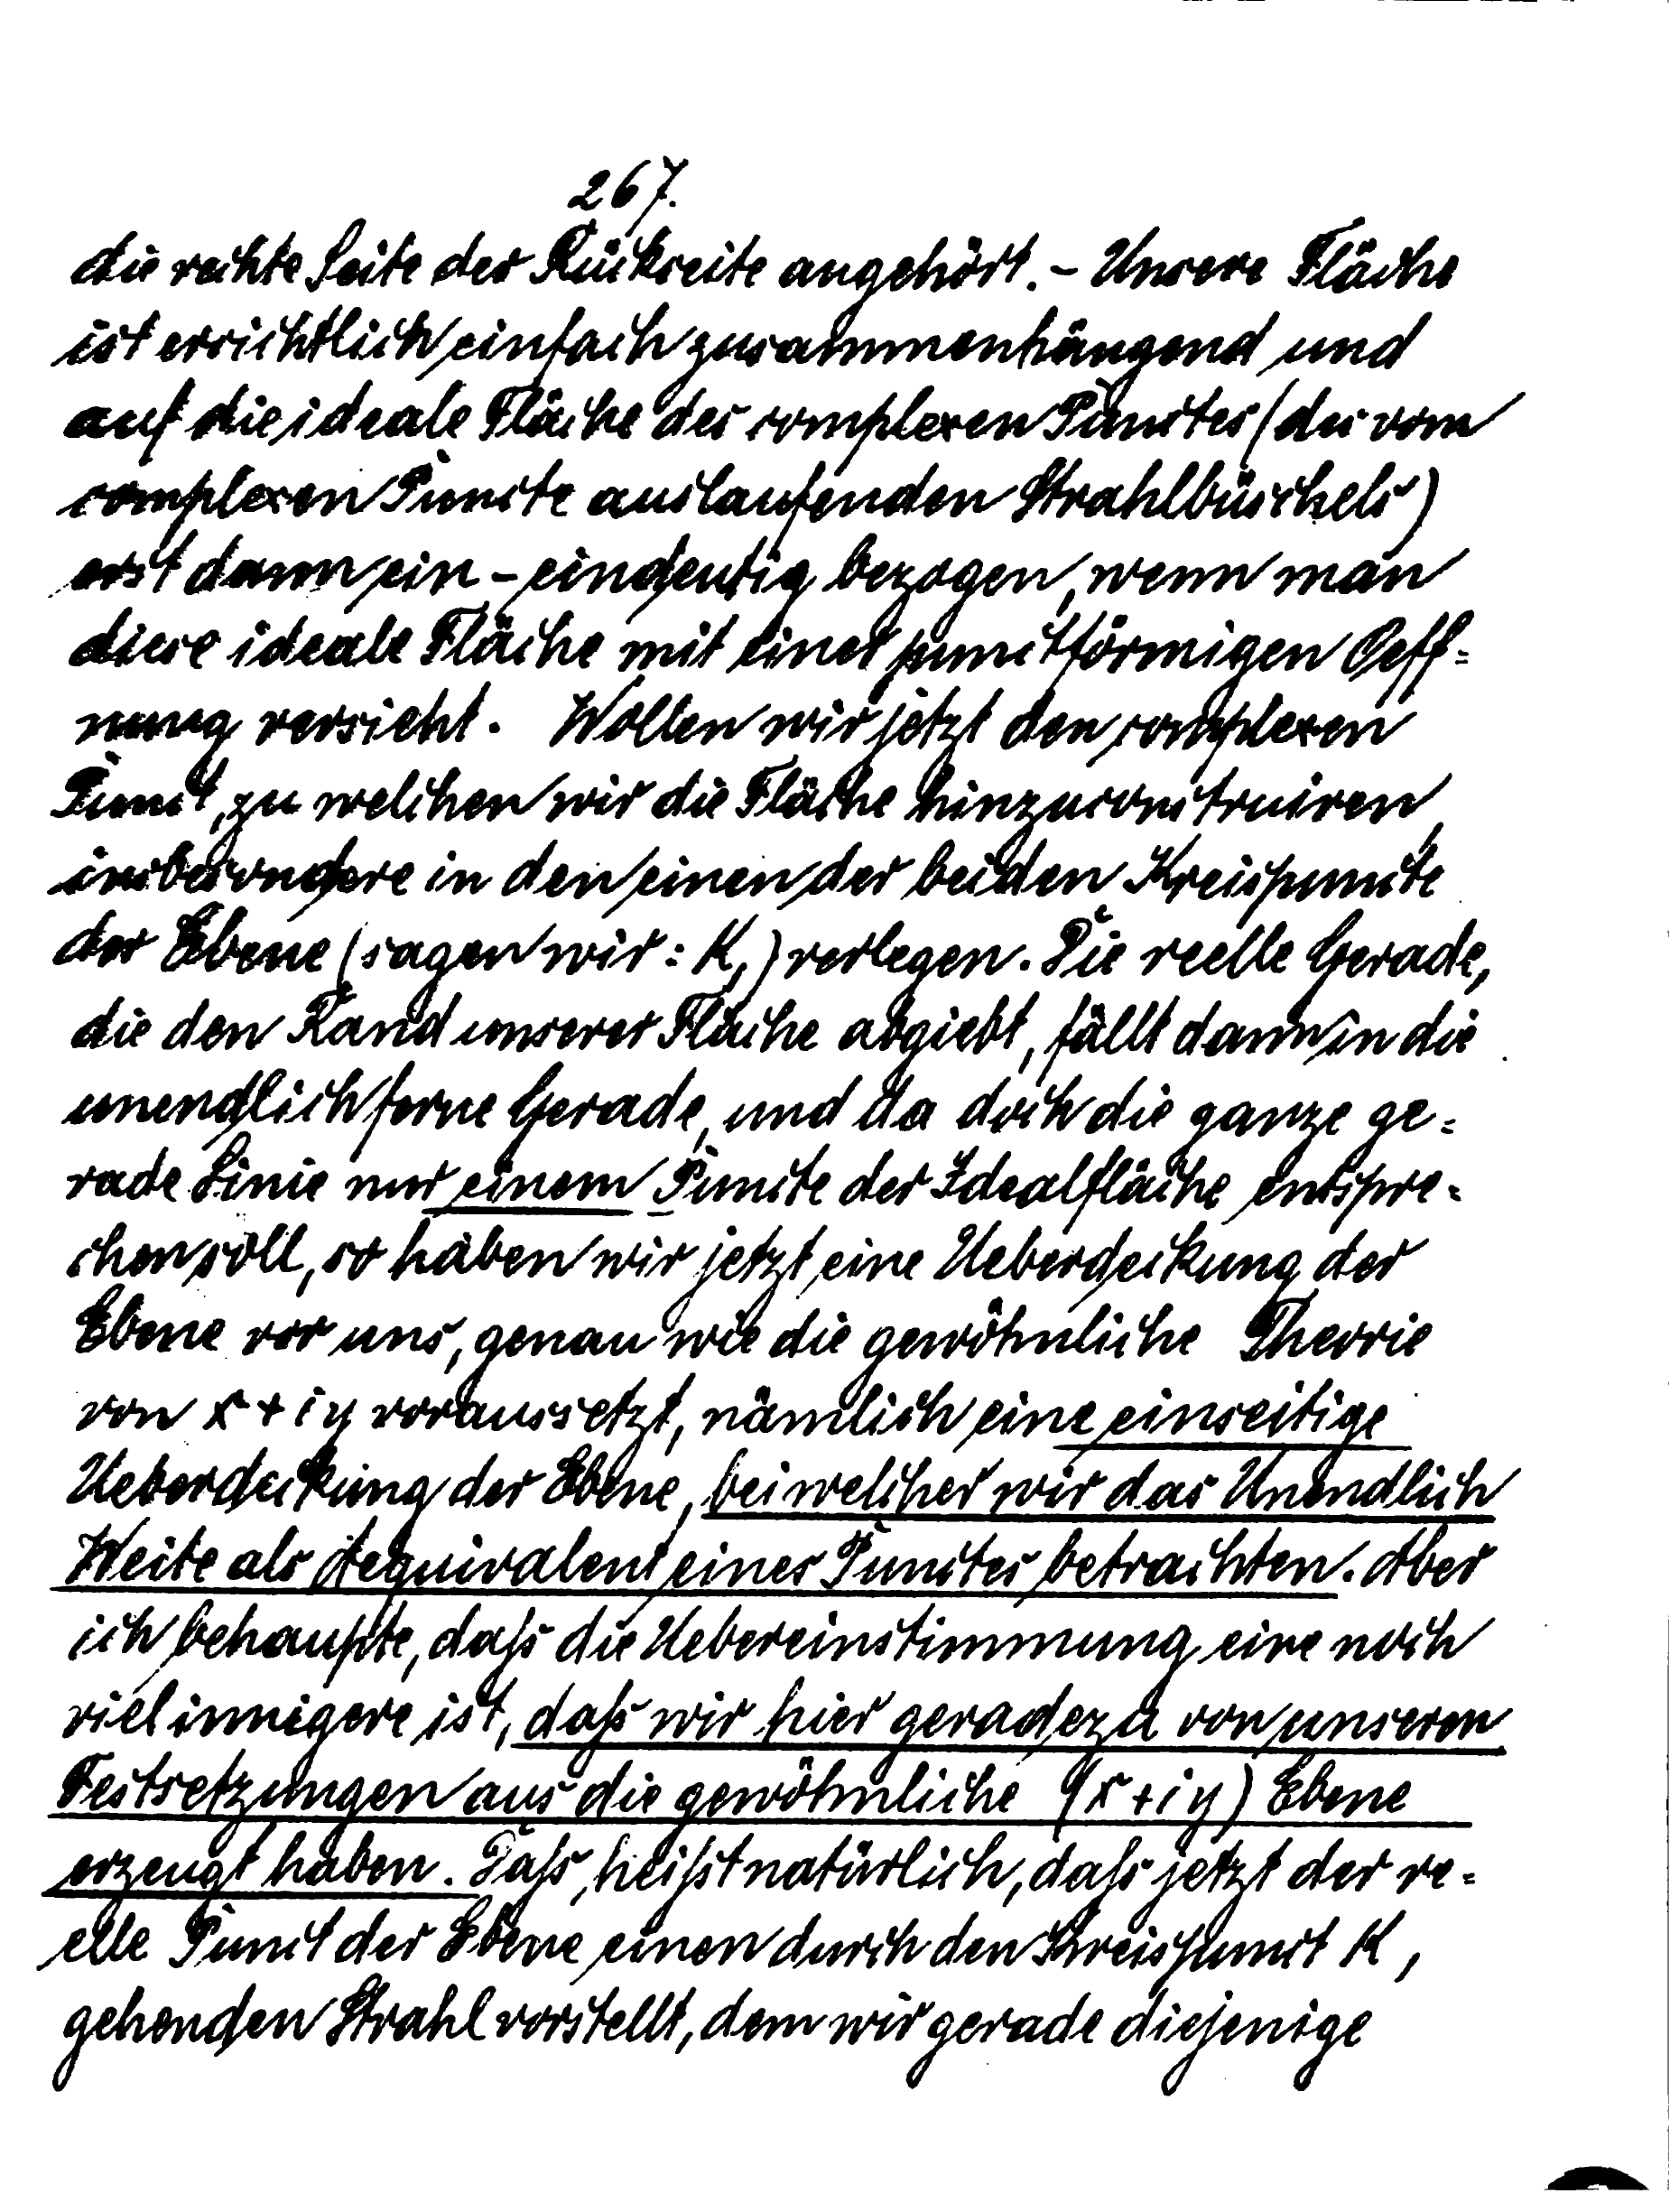 267.
die rechte Seite der Rückseite angehört. – Unsere Fläche
ist ersichtlich einfach zusammenhängend und
auf die ideale Fläche des complexen Punctes (des vom
complexen Puncte auslaufenden Strahlbüschels)
erst dann ein-eindeutig bezogen, wenn man
diese ideale Fläche mit einer punctförmigen Oeff=
nung versieht. Wollen wir jetzt den complexen
Punct, zu welchen wir die Fläche hinzuconstruiren,
insbesondere in den einen der beiden Kreispuncte
der Ebene (sagen wir: K,) verlegen. Die reelle Gerade,
die den Rand unserer Fläche abgiebt, fällt dann in die
unendlich ferne Gerade, und da doch die ganze ge=
rade Linie nur einem Puncte der Idealfläche entspre=
chen soll, so haben wir jetzt eine Ueberdeckung der
Ebene vor uns, genau wie die gewöhnliche Theorie
von x + iy voraussetzt, nämlich eine einseitige
Ueberdeckung der Ebene, bei welcher wir das Unendlich
Weite als Aequivalent eines Punctes betrachten. Aber
ich behaupte, daſs die Uebereinstimmung eine noch
viel innigere ist, daſs wir hier geradezu von unseren
Festsetzungen aus die gewöhnliche (x + iy) Ebene
erzeugt haben. Daſs heiſst natürlich, daſs jetzt der re=
elle Punct der Ebene einen durch den Kreispunct K,
gehenden Strahl vorstellt, dem wir gerade diejenige